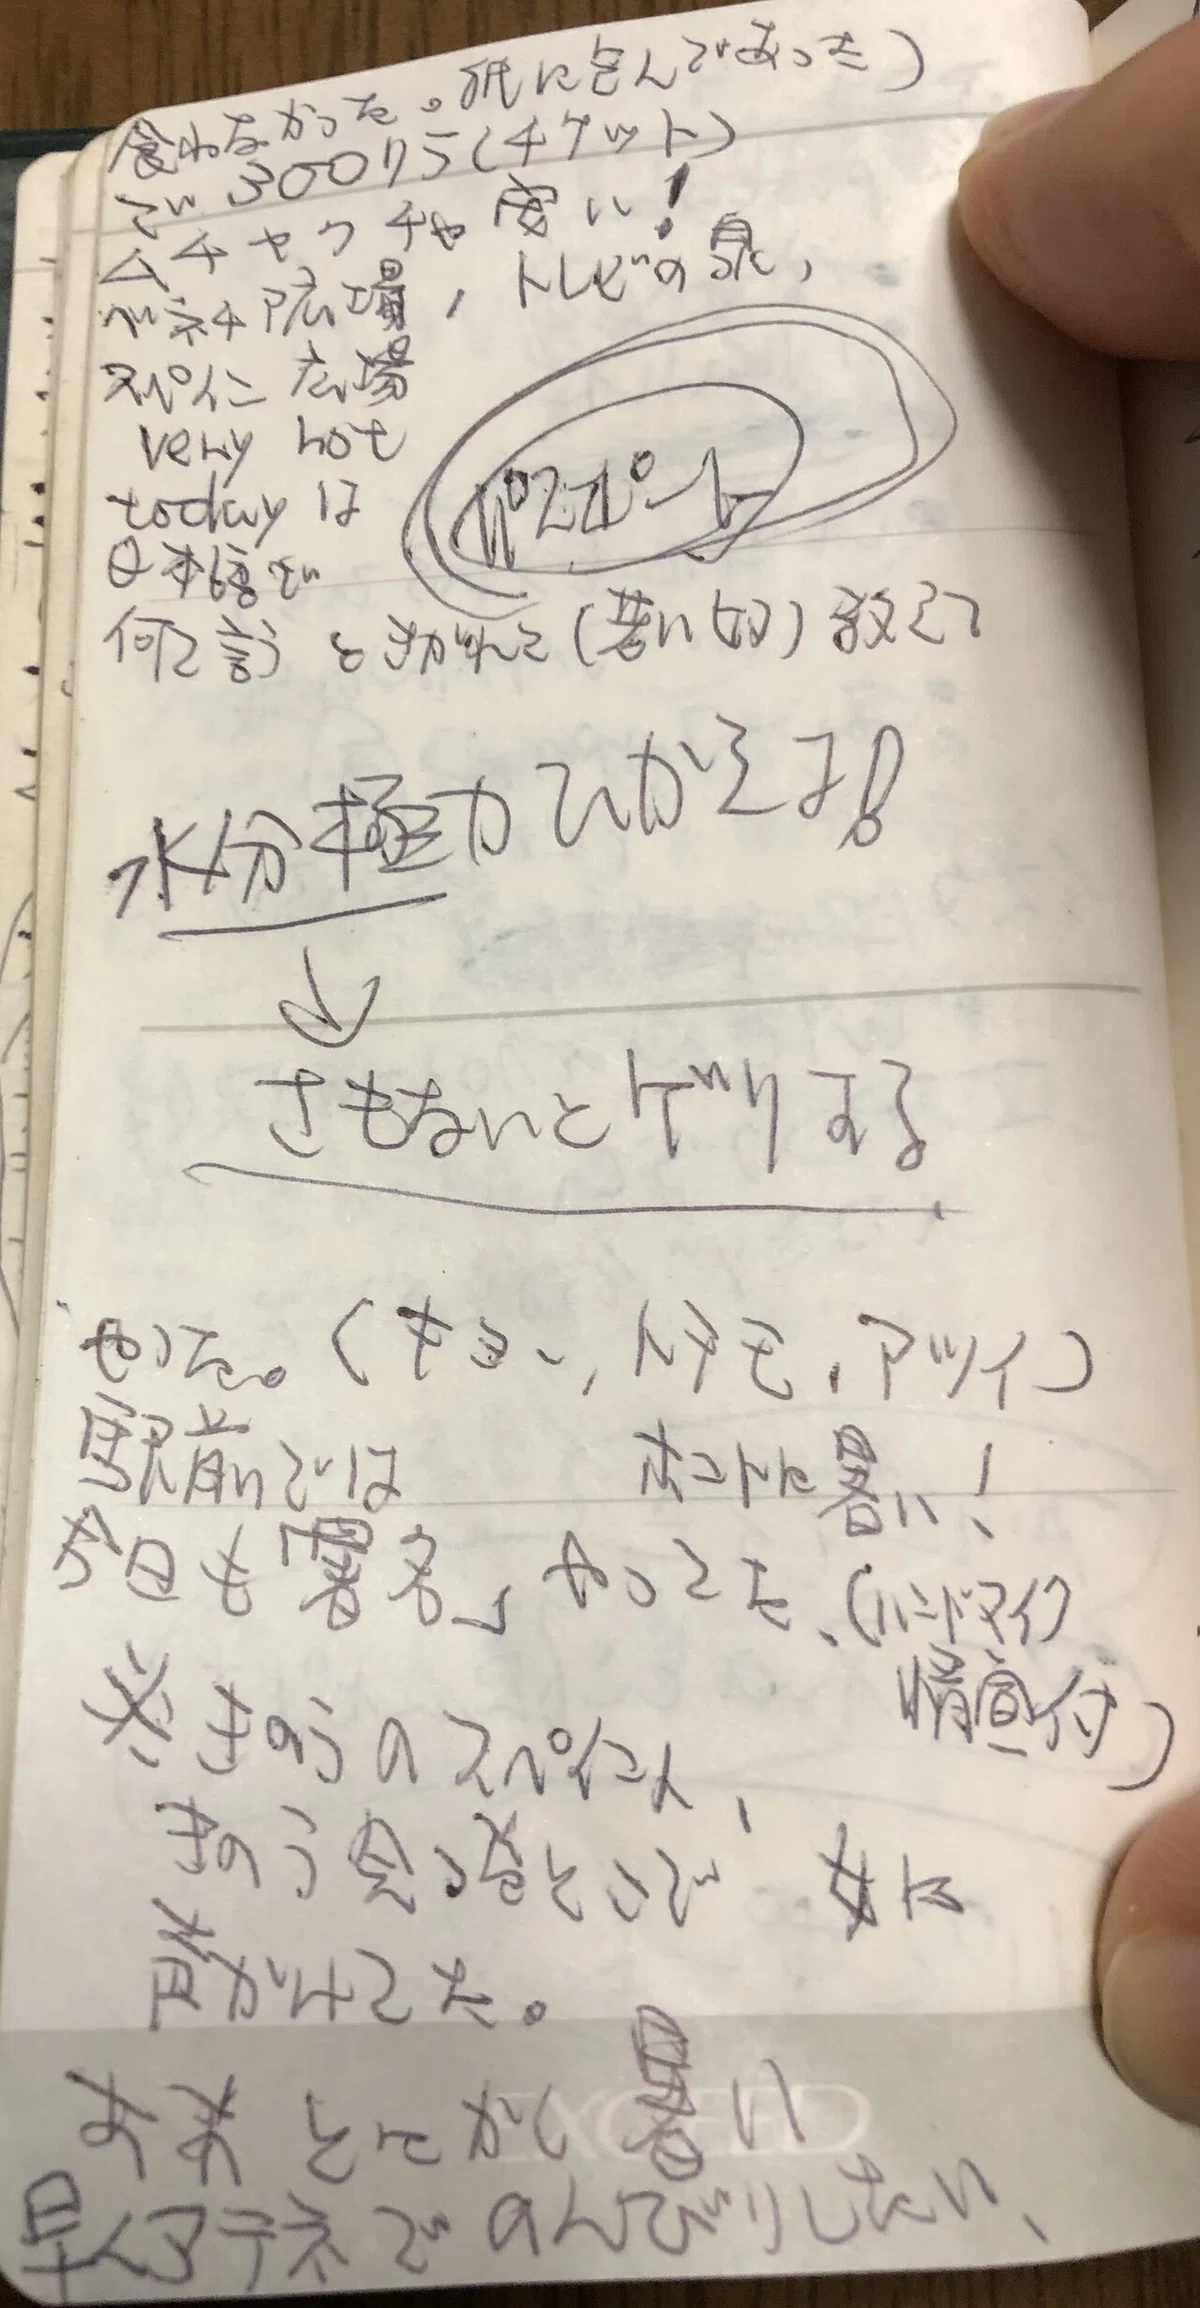 食わなかった。紙に包んであった)
で 300リラ(チケット)
ムチャクチャ安い!
ベネチア広場, トレビの泉,
スペイン広場
very hot
パスポート
todayは
日本語で
何て言う ときかれて(若い奴)教えて
水分極力ひかえよ!
↓
さもないとゲリする
やった。(キョー, トテモ, アツイ)
駅前では
ホントに暑い!
今日も署名 やってた、(ハンドマイク
付)
※ きのうのスペイン人,
きのう会ったとこで 女に
声かけてた。
とにかく 暑い
早くアテネで のんびりしたい、
EXCEED